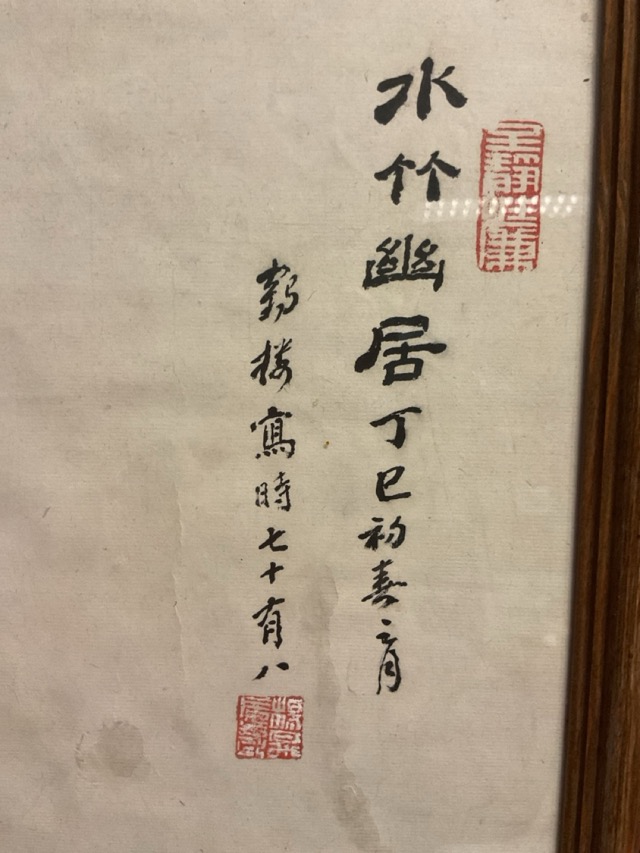 水竹幽居丁巳初春之月
鶴樓寫時七十有八